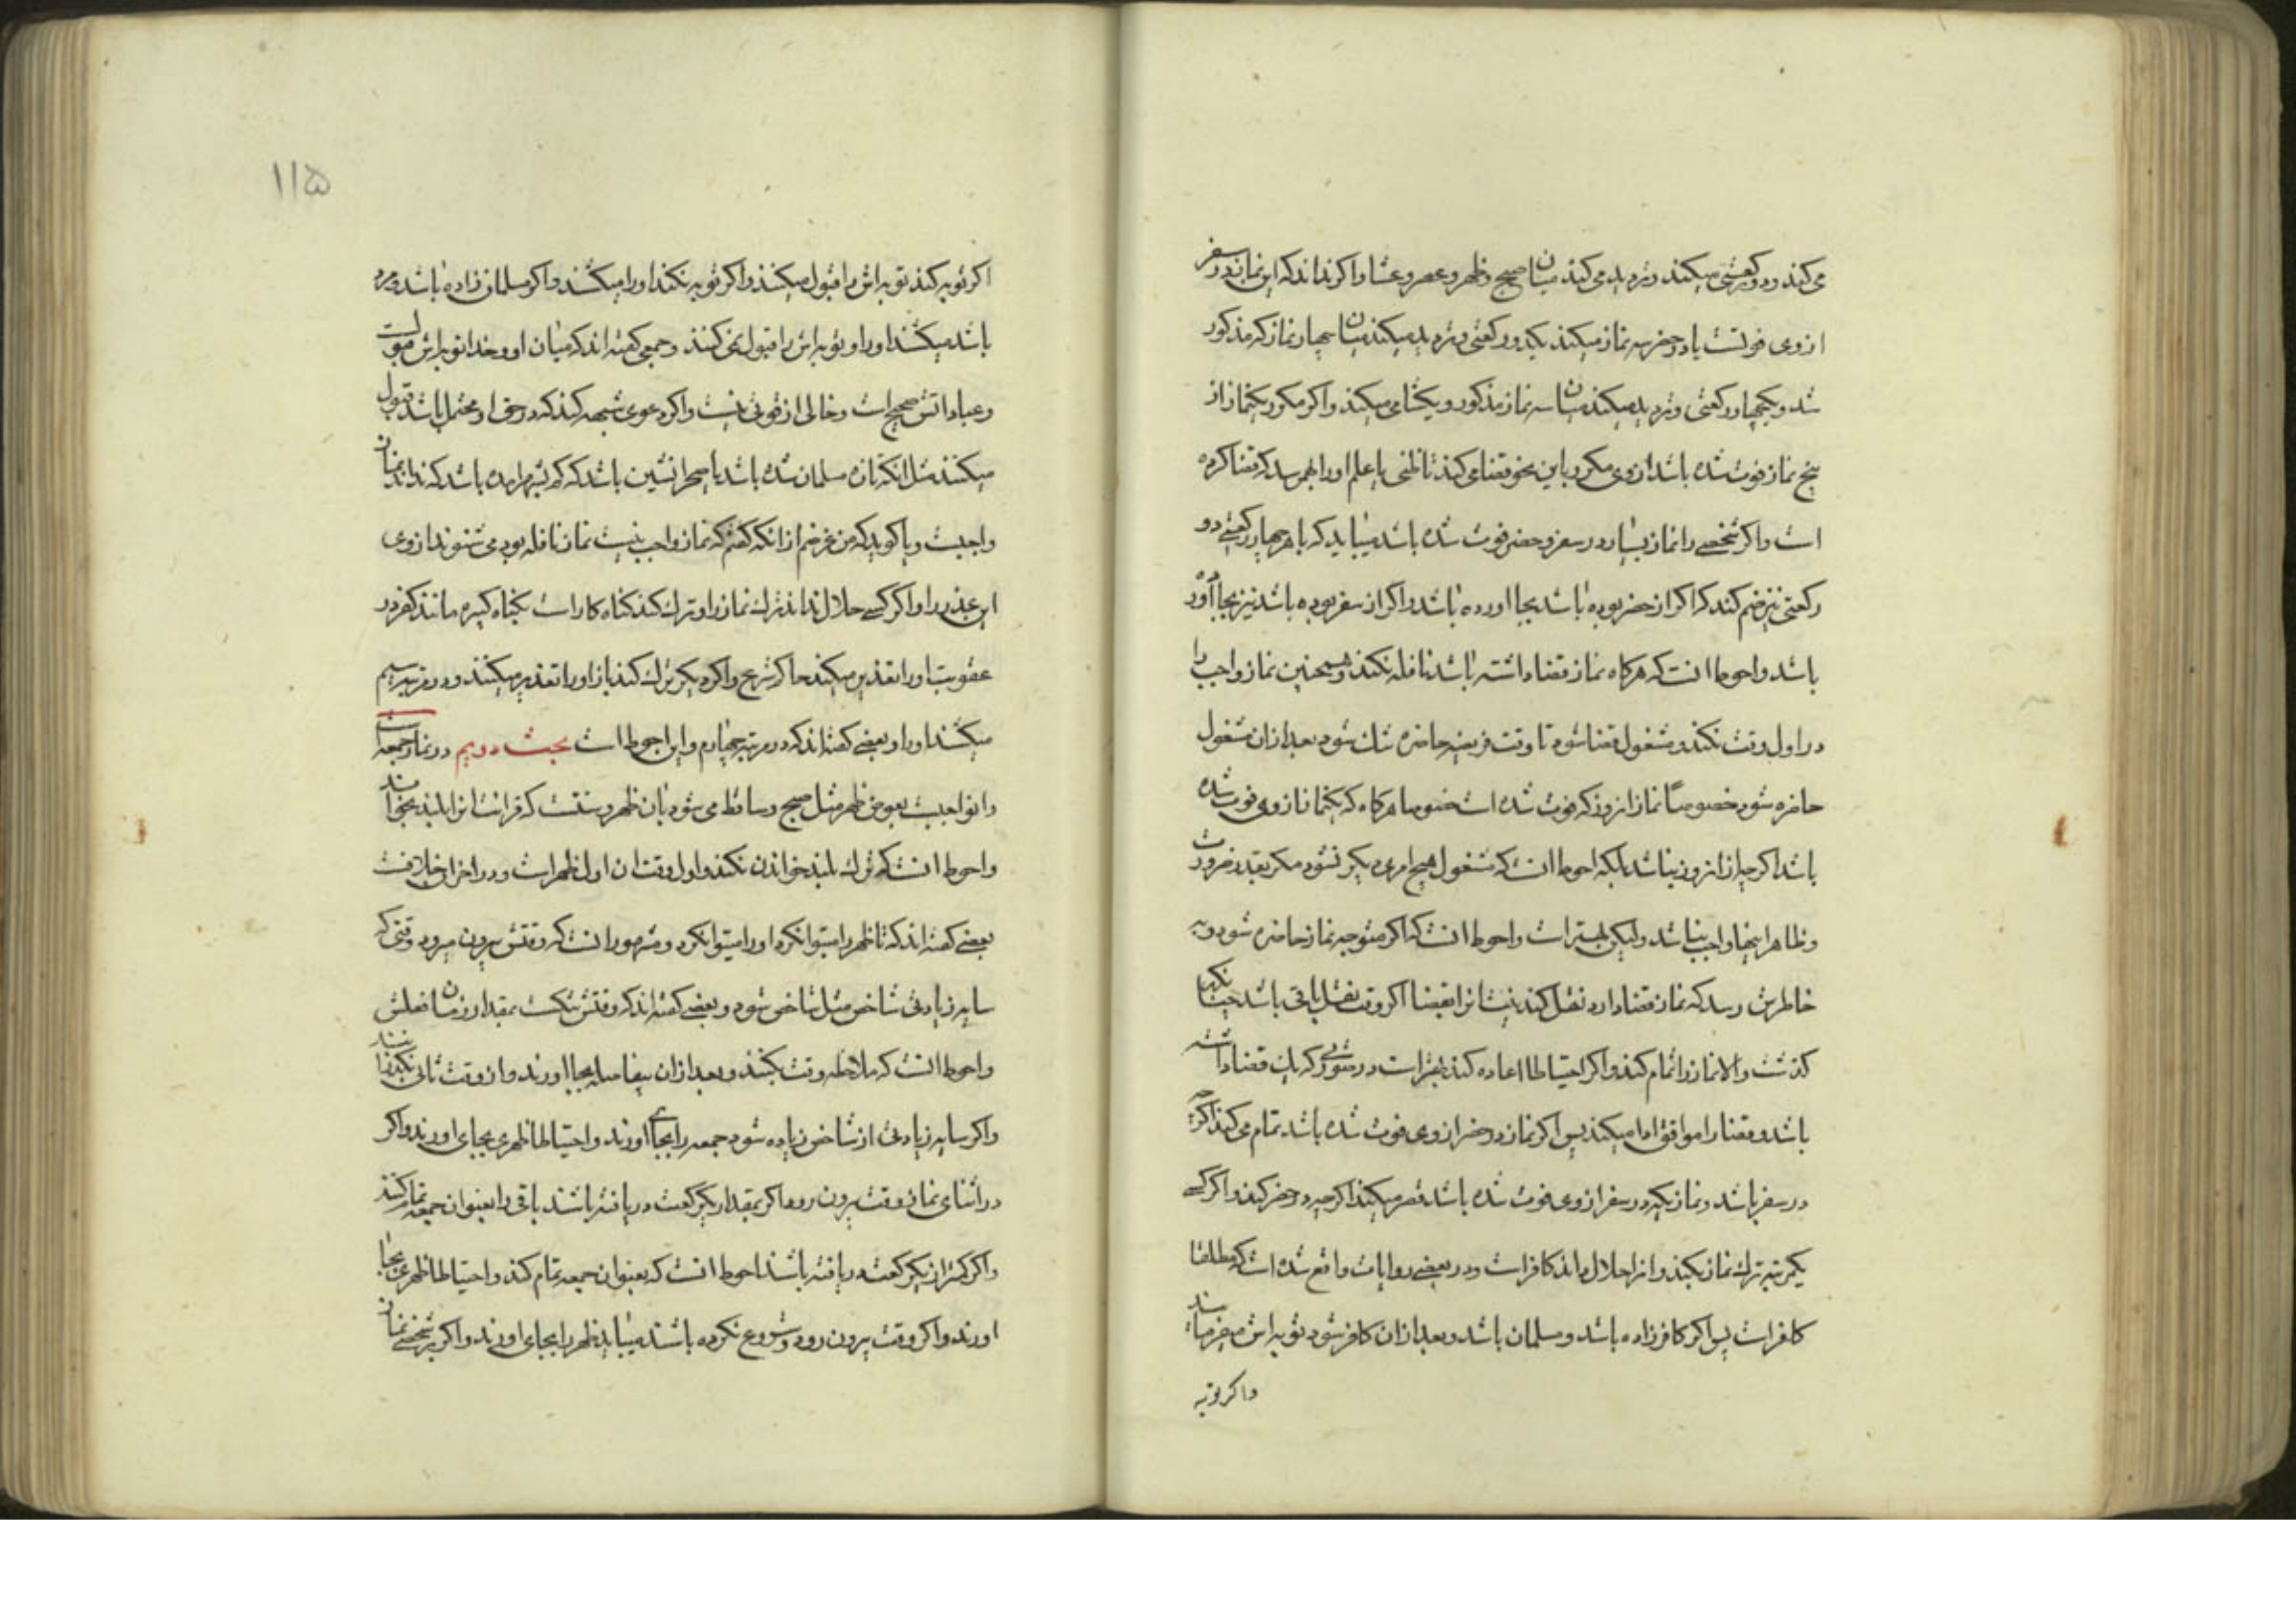 می کند و دو رکعتی میکند و تردید می کند میان صبح و ظهر و عصر و عشا و اکر نداند که این نماز در سفر
از وی فوتست یا در حضر سه نماز میکند یکی دو رکعتی و تردید میکند میان چهار نماز که مذکور
شد و یکی چهار رکعتی و تردید میکند میان سه نماز مذکور و یکشامی میکند و اکر مکرر یکنماز از
پنج نماز فوت شده باشد از وی مکرر باین نحو قضا می کند تا ظنی یا علم او را بهم رسد که قضا کرده
است و اکر شخصی را نماز بسیار در سفر و حضر فوت شده باشد میباید که با هر چهار رکعتی دو
رکعتی نیز ضم کند که اکر از حضر بوده باشد بجا اورده باشد و اکر از سفر بوده باشد نیز بجا آورده
باشد و احوط انست که هرکاه نماز قضا داشته باشد نافله نکند و همچنین نماز واجب را
در اول وقت نکند و مشغول قضا شود تا وقت فریضه حاضره تنك شود بعد ازان مشغول
حاضره شود خصوصاً نماز انروز که فوت شده است خصوصا هرکاه که یکنماز از وی فوت شده
باشد اکرچه از انروز نباشد بلکه احوط انست که مشغول هیچ امری دیکر نشود مکر بقدر ضرورت
و ظاهرا اینها واجب نباشد ولیکن بهتر است و احوط انست که اکر متوجه نماز حاضره شود و به
خاطرش رسد که نماز قضا دارد نقل کند نیتانرا بقضا اکر وقت نقل باقی باشد چنانکه
کذشت والا نماز را تمام کند و اکر احتیاطا اعاده کند بهتر است در صورتی که یك قضا داشته
باشد و قضا را موافق ادا میکند پس اکر نماز در حضر از وی فوت شده باشد تمام می کند اکرچه
در سفر باشد و نمازیکه در سفر از وی فوت شده باشد قصر میکند اکرچه در حضر کند و اکر کسی
یکمرتبه ترك نماز بکند و انرا حلال داند کافر است و در بعضی روایات واقع شده است که مطلقا
کافر است پس اکر کافر زاده باشد و مسلمان باشد و بعد ازان کافر شود توبه اش میفرمایند
و اکر توبه
۱۱۵
اکر توبه کند توبه اش را قبول میکنند و اکر توبه نکند او را میکشند و اکر مسلمان زاده باشد و مرد
باشد میکشند او را و توبه اش را قبول نمی کنند و جمعی کفته اند که میان او و خدا توبه اش مقبولست
و عباداتش صحیح است و خالی از قوتی نیست و اکر دعوی شبهه کند که در حق او محتمل باشد قبول
میکنند مثل انکه تازه مسلمان شده باشد یا صحرا نشین باشد که کم بشهر امده باشد که نداند نماز
واجبست و یا کوید که من غرضم از انکه کفتم که نماز واجب نیست نماز نافله بود می شنوند از وی
این عذر را و اکر کسی حلال نداند ترك نماز را و ترك کند کناه کار است بکناه کبیره مانند کفر در
عقوبت او را تعذیر میکند حاکم شرع و اکر دیکر ترك کند باز او را تعذیر میکنند و در مرتبه سیم
میکشند او را و بعضی کفته اند که در مرتبه چهارم و این احوط است بحث دویم در نماز جمعه است
و انواجبست بعوض ظهر مثل صبح و ساقط می شود بان ظهر و سنتست که قرائت انرا بلند بخوانند
و احوط انست که ترك بلند خواندن نکند و اول وقت ان اول ظهر است و در اخران خلافست
بعضی کفته اند که تا ظهر را میتوانکرد او را میتوانکرد و مشهور انست که وقتش بیرون میرود وقتی که
سایه زیادتی شاخص مثل شاخص شود و بعضی کفته اند که وقتش تنکست بمقدار زمان فعلش
و احوط انست که ملاحظه وقت بکنند و بعد ازان بیفاصله بجا اورند و از وقت ثانی نکذرانند
و اکر سایه زیادتی از شاخص زیاده شود جمعه را بجای اورند و احتیاطا ظهری بجای اورند و اکر
در اثنای نماز وقت بیرون رود اکر بمقدار یکرکعت دریافته باشند باقی را بعنوان جمعه تمام کنند
و اکر کمتر از یکرکعت دریافته باشند احوط انست که بعنوان جمعه تمام کند و احتیاطا ظهری بجا
اورند و اکر وقت بیرون رود و شروع نکرده باشند میباید ظهر را بجای اورند و اکر بر شخصی نماز